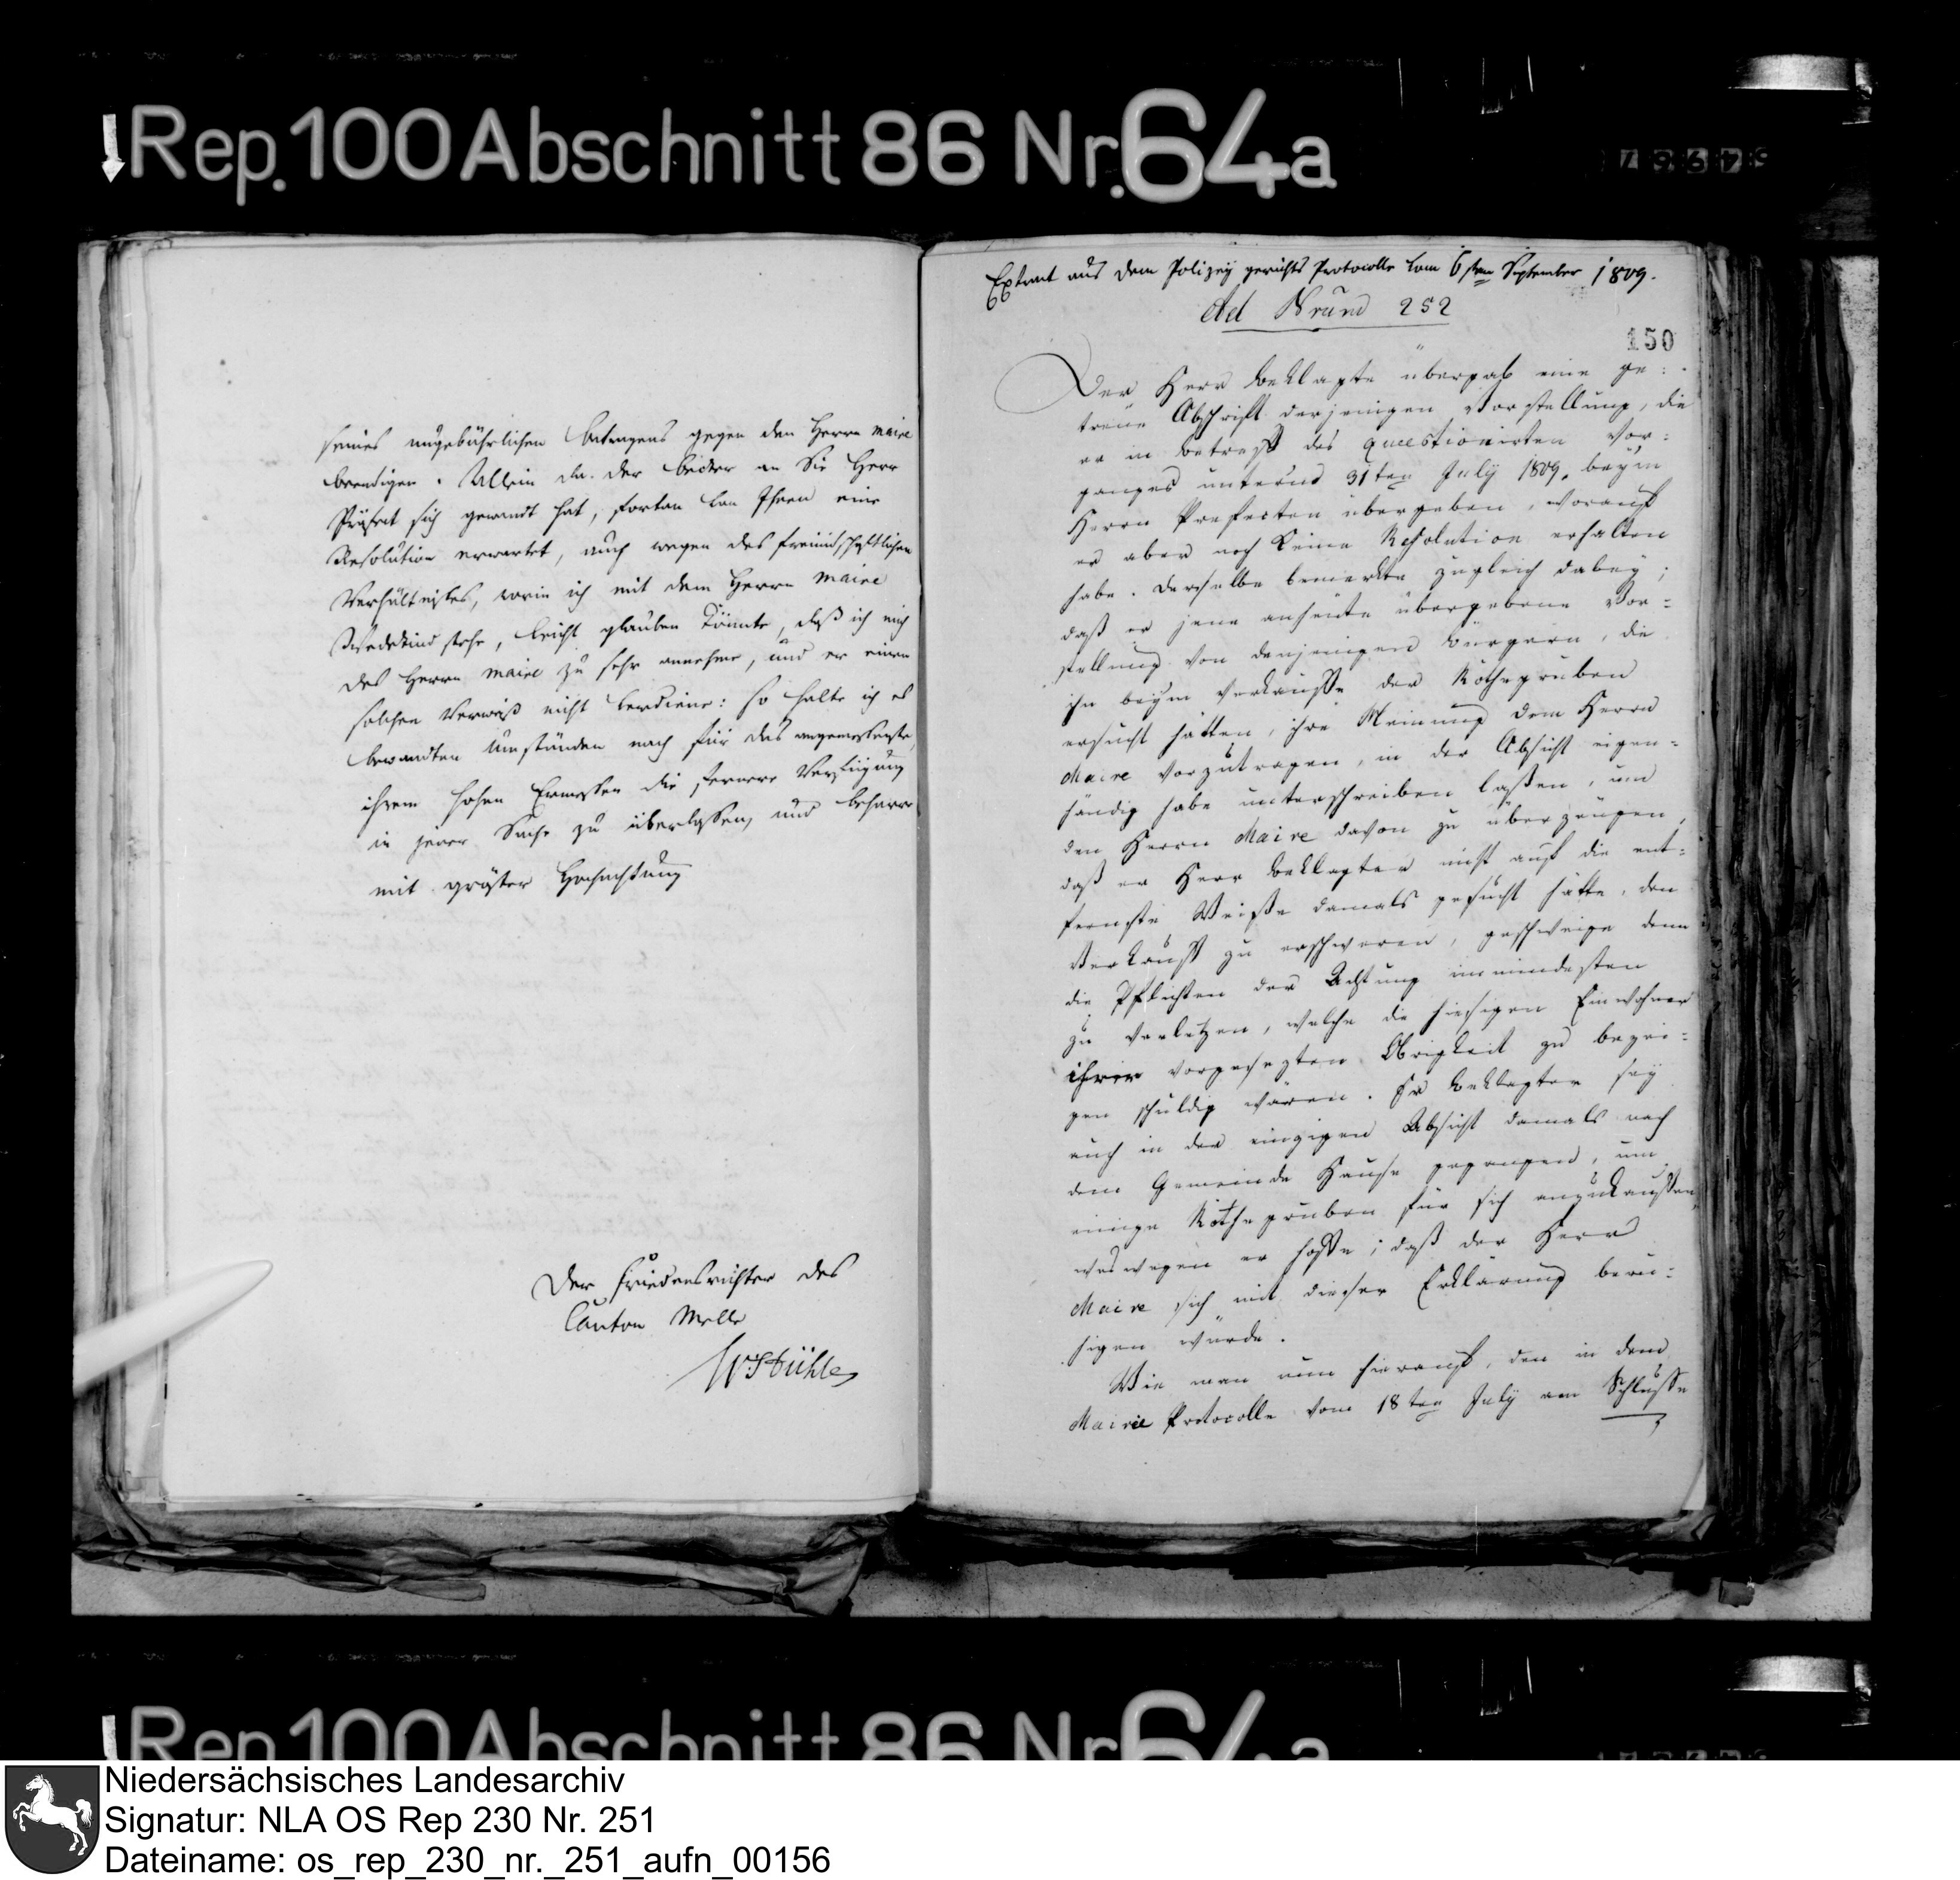 Rep. 100 Abschnitt 86 Nr. 64a
seines ungebührlichen Betragens gegen den Herrn Maire
beendigen. Allein da der Becker an Sie Herr
Präfect sich gewandt hat, fortan von Ihnen eine
Resolution erwartet, auch wegen des freundschaftlichen
Verhältnißes, worin ich mit dem Herrn Maire
Wedekind stehe, leicht glauben könnte, daß ich mich
des Herrn Maire zu sehr annehme, und er einen
solchen Verweiß nicht verdiene: so halte ich es
bewandten Umständen nach für das angemessenste,
ihrem hohen Ermessen die fernere Verfügung
in jener Sache zu überlassen, und beharre
mit größter Hochachtung
Der Friedensrichter des
Canton Melle
Extract aus dem Polizey gerichts Protocolle vom 6ten September 1809.
Ad Nrum 252
150
Der Herr Beklagte übergab eine ge:
treue Abschrift derjenigen Vorstellung, die
er in Betreff des quaestionirten Vor:
ganges unterm 31ten July 1809. beym
Herrn Prefecten übergeben, worauf
er aber noch keine Resolution erhalten
habe. Derselbe bemerkte zugleich dabey;
daß er jene anheute übergebene Vor:
stellung von denjenigen Bürgern, die
ihn beym Verkauffe der Röthegruben
ersucht hätten, ihre Meinung dem Herrn
Maire vorzutragen, in der Absicht eigen:
händig habe unterschreiben laßen, um
den Herrn Maire davon zu überzeugen,
daß er Herr Beklagter nicht auf die ent:
fernste Weise damals gesucht hätte, den
Verkauff zu erschweren, geschweige denn
die Pflichten der Achtung im mindesten
zu verletzen, welche die hiesigen Einwohner
ihrer vorgesezten Obrigkeit zu bezei:
gen schuldig wären. Er Beklagter sey
auch in der einzigen Absicht damals nach
dem Gemeinde Hause gegangen, um
einige Röthegruben für sich anzukauffen,
weswegen er hoffe; daß der Herr
Maire sich mit dieser Erklärung beru:
higen würde.
Wie man nun hierauf, den in dem
Mairie Protocolle vom 18ten July am Schlusse
Rep. 100 Abschnitt 86 Nr. 64a
Niedersächsisches Landesarchiv
Signatur: NLA OS Rep 230 Nr. 251
Dateiname: os_rep_230_nr._251_aufn_00156